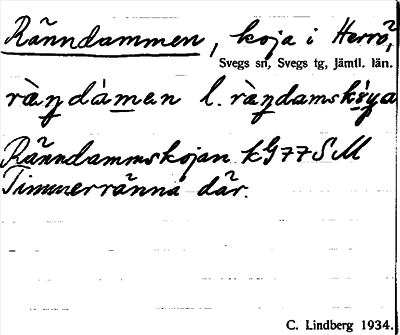 Ränndammen, koja i Herrö,
Svegs sn, Svegs tg, Jämtl. län.
ràŋdàmen l. ràŋdamskòya
Ränndammskojan kG77SM
Timmerränna där.
C. Lindberg 1934.